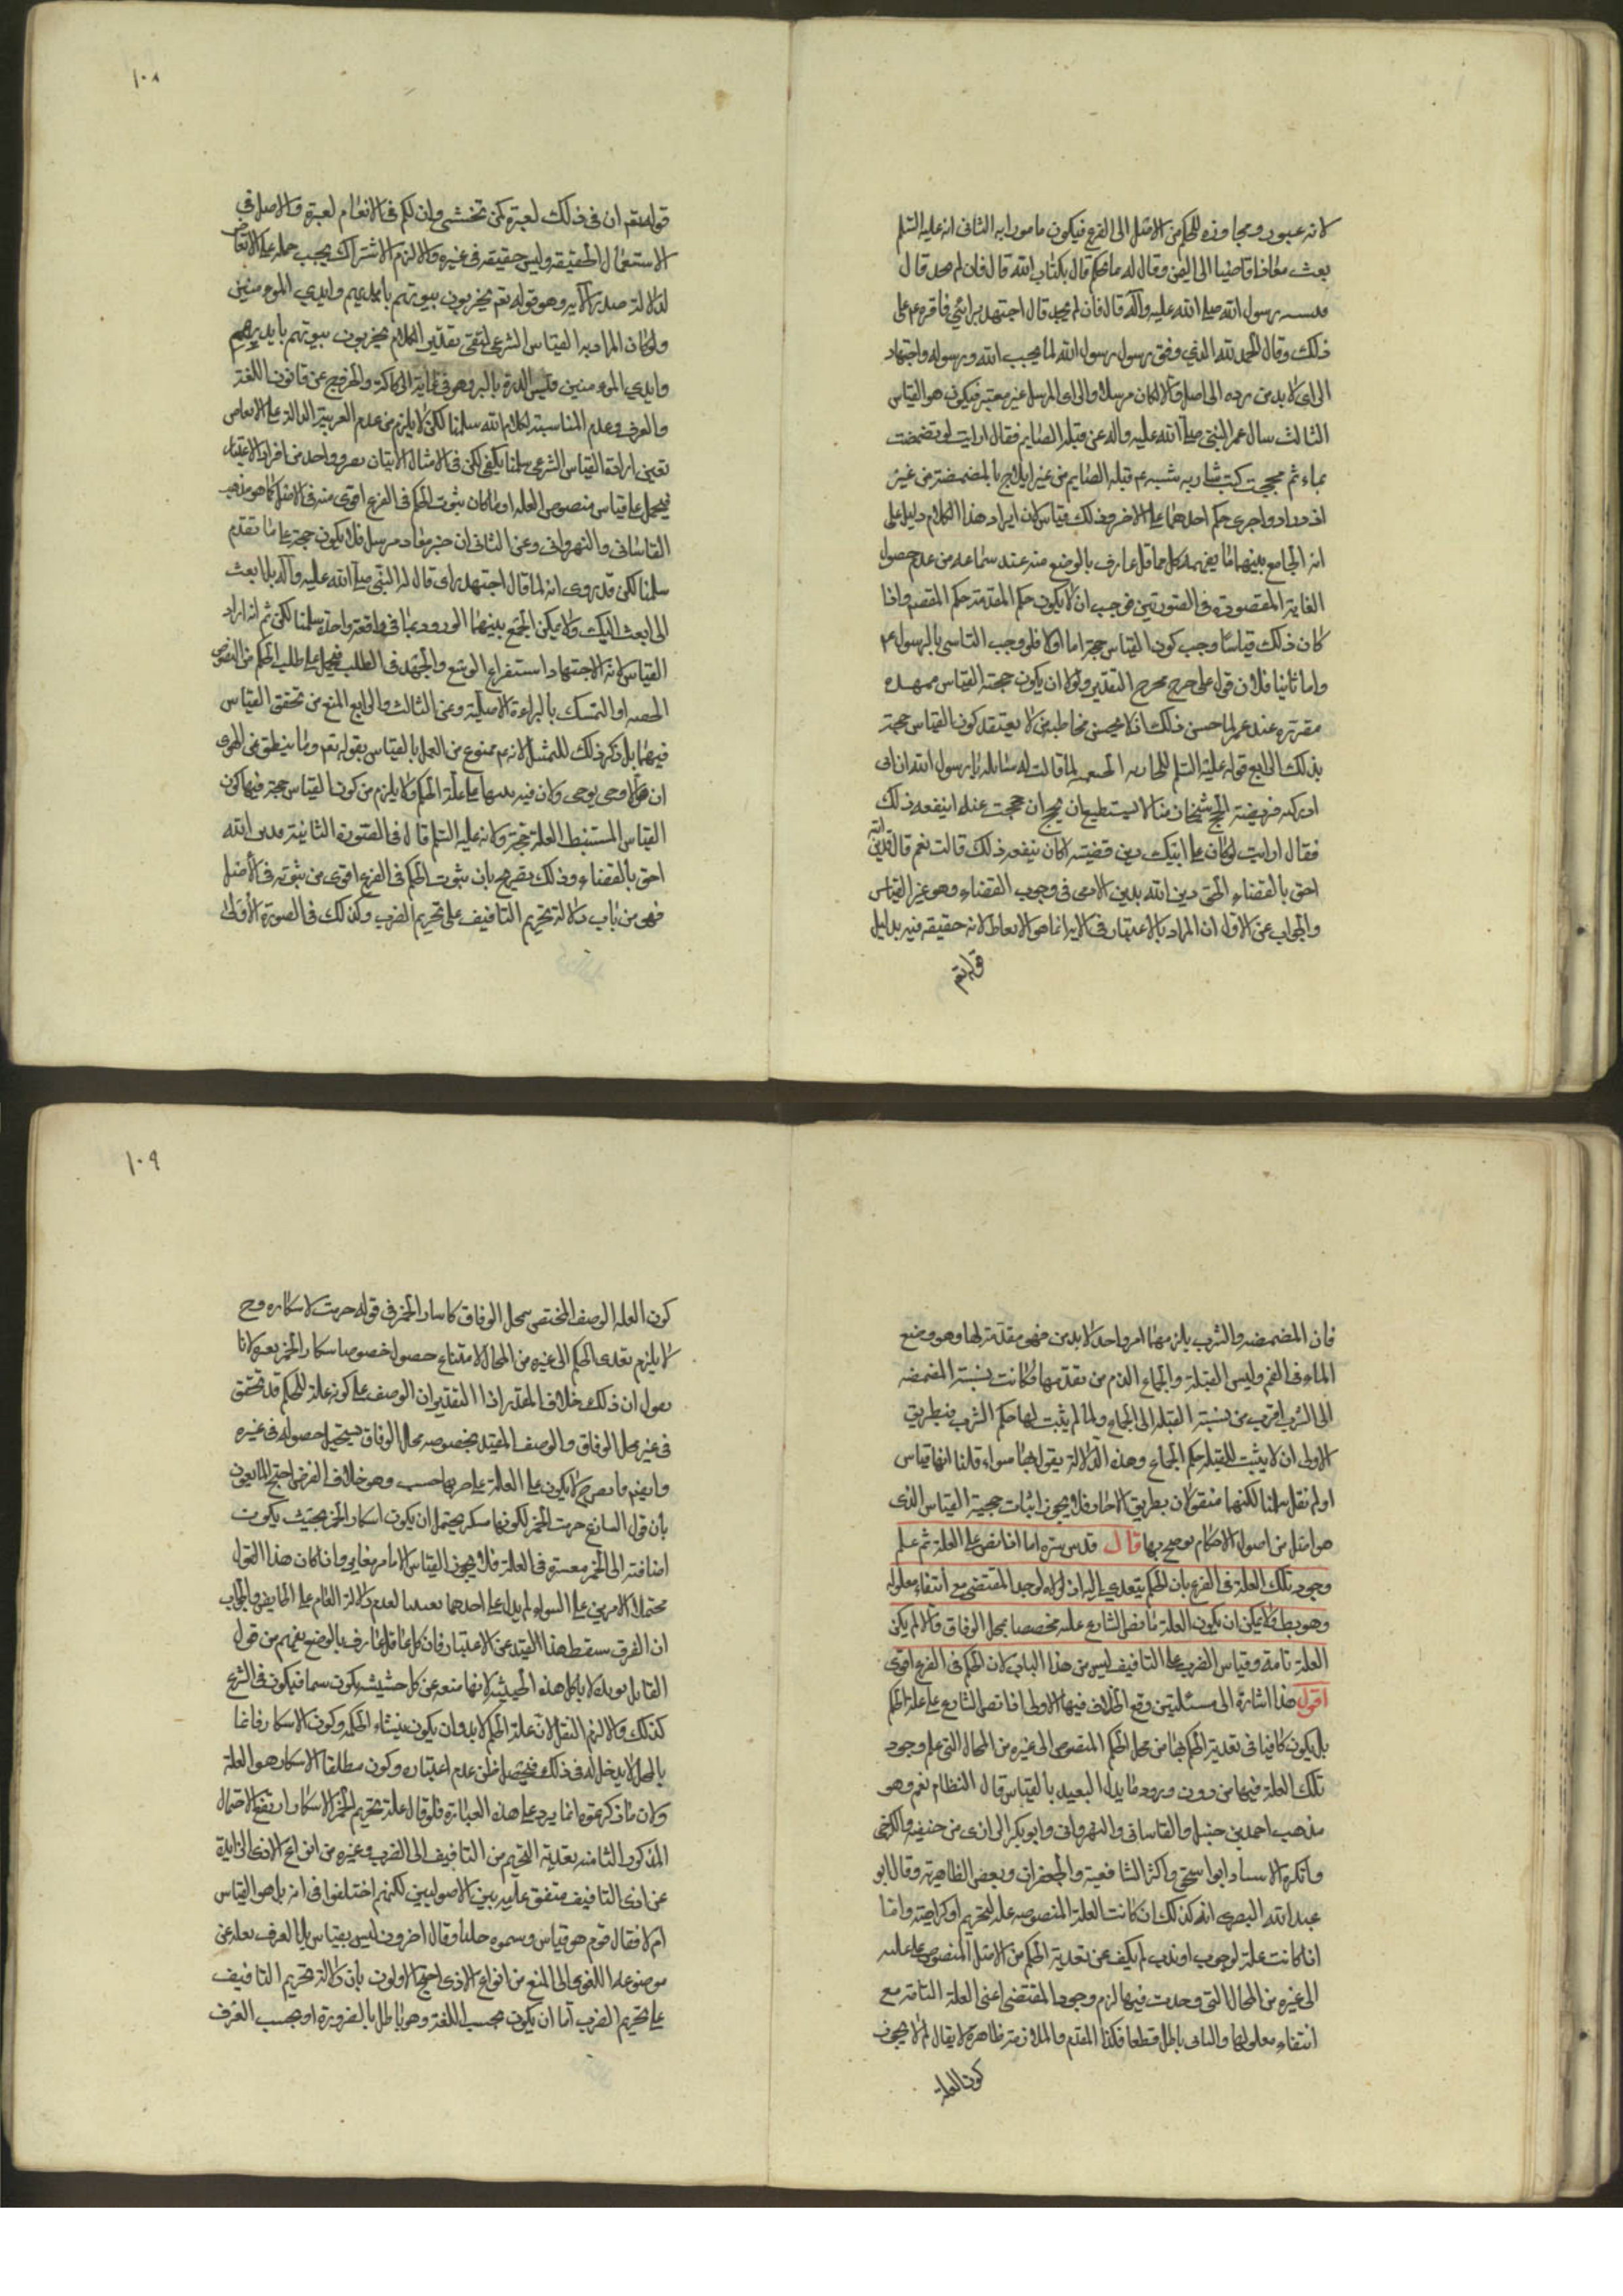 ١٠٨
لانه عبور ومجاوزه للحكم من الاصل الى الفرع فيكون مامورا به الثانى انه عليه السلم
بعث معاذا قاضيا الى اليمن وقال له ما تحكم قال بكتاب الله قال فان لم تجد قال
رسول الله صلى الله عليه وآله قال فان لم تجد قال اجتهد برائي فاقره ع على
ذلك وقال الحمد لله الذي وفق رسول رسول الله لما يحب الله ورسوله واجتهاد
الراى لا بد من رده الى اصل والا لكان مرسلا والراى المرسل غير معتبر فيكون هو القياس
الثالث سال عمر النبى صلى الله عليه واله عن قبلة الصايم فقال ارايت لو تمضمضت
بماء ثم مججته اكنت شاربه شبه ع قبلة الصايم من غير ايلاج بالمضمضة من غير
ازدراد واجرى حكم احدهما على الاخر وذلك قياس لان ايراد هذا الكلام دليل على
انه الجامع بينهما ما يفهمه كل عاقل عارف بالوضع منه عند سماعه من عدم حصول
الغاية المقصودة فى الصورتين فوجب ان لا يكون حكم المقدمة حكم المقصد واذا
كان ذلك قياسا وجب كون القياس حجة اما اولا فلوجوب التاسى بالرسول ع
واما ثانيا فلان قوله على خرج مخرج التقدير ولولا ان يكون حجة القياس ممهده
مقررة عند عمر لما حسن ذلك اذ لا يحسن مخاطبة من لا يعتقد كون القياس حجة
بذلك الرابع قوله عليه السلم للجاريه الخثعميه لما قالت له سائلة يا رسول الله ان ابى
ادركته فريضة الحج شيخا زمنا لا يستطيع ان يحج ان حججت عنه اينفعه ذلك
فقال ارايت لو كان على ابيك دين فقضيته اكان ينفعه ذلك قالت نعم قال فدين الله
احق بالقضاء الحق دين الله بدين الادمى فى وجوب القضاء وهو عين القياس
والجواب عن الاول ان المراد بالاعتبار فى الاية انما هو الاتعاظ لانه حقيقة فيه بدليل
قوله تعم
قوله تعم ان فى ذلك لعبرة لمن يخشى وان لكم فى الانعام لعبرة والاصل فى
الاستعمال الحقيقه وليس حقيقه فى غيره والا لزم الاشتراك يجب حمله على الاتعاظ
لدلالة صدر الآيه وهو قوله تعم يخربون بيوتهم بايديهم وايدي المومنين
ولو كان المراد به القياس الشرعى لبقى تقدير الكلام يخربون بيوتهم بايديهم
وايدي المومنين فقيسوا الذرة بالبر وهو فى غاية الركاكة والخروج عن قانون اللغة
والعرف وعدم المناسبة لكلام الله سلمنا لكن لا يلزم من عدم القرينة الدالة على الاتعاظ
تعيين ارادة القياس الشرعى سلمنا يكفى لكن فى الامتثال الاتيان بفرد واحد من افراد الاعتبار
فيحمل على قياس منصوص العلة او ما كان ثبوت الحكم فى الفرع اقوى منه فى الاصل كما هو مذهب
القاسانى والنهروانى وعن الثانى ان خبر معاذ مرسل فلا يكون حجة على ما تقدم
سلمنا لكن قد روى انه لما قال اجتهد راى قال له النبى صلى الله عليه وآله بل ابعث
الى ابعث اليك ولا يمكن الجمع بينهما لورودهما فى واقعة واحدة سلمنا لكن ثم انه اراد
القياس لانه الاجتهاد استفراغ الوسع والجهد فى الطلب فيحمل على طلب الحكم من النصوص
الخفيه او التمسك بالبراءة الاصلية وعن الثالث والرابع المنع من تحقق القياس
فيهما بل ذكر ذلك للتمثيل لانه ع ممنوع من العمل بالقياس بقوله تعم وما ينطق عن الهوى
ان هو الا وحى يوحى ولان فيه تنبيها على علة الحكم ولا يلزم من كون القياس حجة فيها كون
القياس المستنبط العلة حجة ولانه عليه السلم قال فى الصورة الثانية فدين الله
احق بالقضاء وذلك تصريح بان ثبوت الحكم فى الفرع اقوى من ثبوته فى الأصل
فهى من باب دلالة تحريم التافيف على تحريم الضرب وكذلك فى الصورة الأولى
١٠٩
فان المضمضه والشرب يلزمهما امر واحد لا بد من فهى مقدمة لها وهو وضع
الماء فى الفم وليس القبلة والجماع الذم من تقدمها وكانت نسبة المضمضه
الى الشرب اقرب من نسبة القبلة الى الجماع ولما لم يثبت لها حكم الشرب فبطريق
الاولى ان لا يثبت للقبلة حكم الجماع وهذه الدلالة يقول بها سواء قلنا انها قياس
او لم نقل سلمنا لكنها منقولان بطريق الاحاد فلا يجوز اثبات حجية القياس الذى
هو اصل من اصول الاحكام بها قال قدس سره اما اذا نص على العلة ثم علم
وجود تلك العلة فى الفرع بان الحكم يتعدى اليه اذ لولاه لوجد المقتضى مع انتفاء معلوله
وهو بط لا يمكن ان يكون العلة ما نص الشارع عليه مخصصا بمحل الوفاق والا لم يكن
العلة تامة وقياس الضرب على التافيف ليس من هذا الباب لان الحكم فى الفرع اقوى
اقول هذا اشارة الى مسئلتين وقع الخلاف فيهما الاولى اذا نص الشارع على علة الحكم
هل يكون كافيا فى تعدية الحكم بها من محل الحكم المنصوص الى غيره من المحال التى علم وجود
تلك العلة فيها من دون ورود ما يدل التعبد بالقياس قال النظام نعم وهو
مذهب احمد بن حنبل والقاسانى والنهروانى وابو بكر الرازى من حنيفه والكرخى
وانكره الاستاد ابو اسحق واكثر الشافعية والجعفران وبعض الظاهرية وقال ابو
عبد الله البصرى انه كذلك ان كانت العلة المنصوصه علة للتحريم او كراهة واما
اذا كانت علة لوجوب او ندب لم يكف عن تعدية الحكم من الاصل المنصوص على علته
الى غيره من المحال التى وجدت فيها لزم وجود المقتضى اعنى العلة التامة مع
انتفاء معلولها والتالى باطل قطعا فكذا المقدم والملازمة ظاهرة لا يقال لم لا يجوز
كون العلة
كون العلة الوصف المختص بمحل الوفاق كاسكار الخمر فى قوله حرمت لاسكاره وح
لا يلزم تعدى الحكم الى غيره من المحال لامتناع حصول خصوص اسكار الخمر بغيره لانا
نقول ان ذلك خلاف المقدر اذا التقدير ان الوصف على كونه علة للحكم قد تحقق
فى غير محل الوفاق والوصف المقيد بخصوصه محل الوفاق يستحيل حصوله فى غيره
وايضم لا يكون على العلة حسب وهو خلاف الفرض احتج المانعون
بان قول الشارع حرمت الخمر لكونها مسكر يحتمل ان يكون اسكار الخمر بحيث يكون
اضافته الى الخمر معتبرة فى العلة فلا يجوز القياس واذا كان هذا القول
محتمل الامرين على السواء لم يدل على احدهما لعدم دلالة العام على الخاص والجواب
ان الفرق سقط هذا القيد عن الاعتبار فان كل عاقل عارف بالوضع يفهم من قول
القائل لولده لا تاكل هذه الحشيشة لانها منعه عن كل حشيشة يكون سما فيكون فى الشرع
كذلك والا لزم النقل لان علة الحكم لا بد وان يكون منشاء الحكمه وكون الاسكار قائما
بالمحل لا يدخل له فى ذلك فيحصل ظن عدم اعتباره وكون مطلقا الاسكار هو العلة
ولان ما ذكرتموه انما يرد على هذه العبارة فلو قال علة تحريم الخمر الاسكار ارتفع الاحتمال
المذكور الثانيه تعدية التحريم من التافيف الى الضرب وغيره من انواع الاذى الزايدة
عن اذى التافيف متفق عليه بين الاصوليين لكنهم اختلفوا فى انه هل هو القياس
ام لا فقال قوم هو قياس وسموه جليا وقال اخرون ليس بقياس بل العرف نقله عن
موضوعه اللغوى الى المنع من انواع الاذى احتج الاولون بان دلالة تحريم التافيف
على تحريم الضرب اما ان يكون بحسب اللغة وهو باطل بالضرورة او بحسب العرف